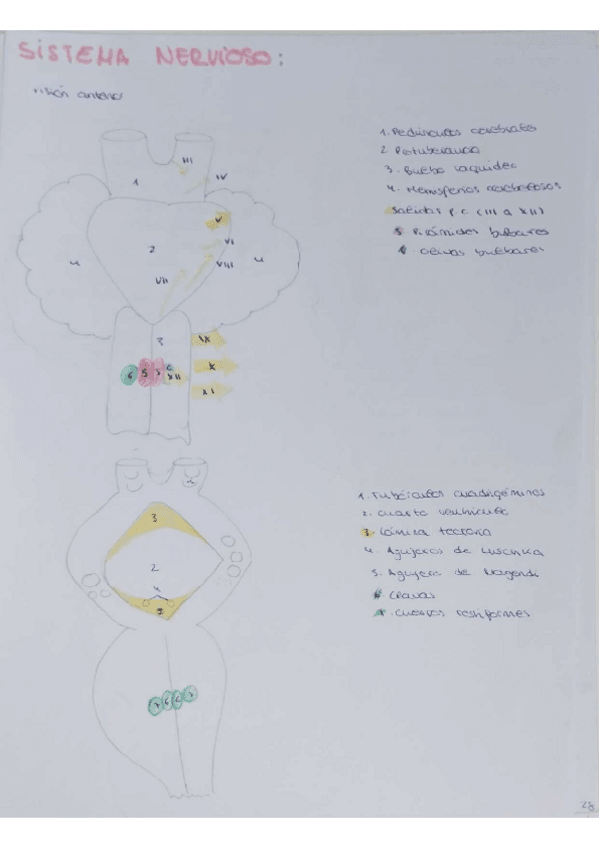 SISTEMA NERVIOSO:
visión anterior
1. Pedúnculos cerebrales
2 Protuberancia
3. Bulbo raquídeo
4. Hemisferios cerebelosos
Salidas P.C (III a XII)
5. Pirámides bulbares
6. Olivas bulbares
III
IV
1
V
2
VI
4
4
VIII
VII
3
IX
6 5 5 6
X
XII
XI
1. Tubérculos cuadrigéminos
2. Cuarto ventrículo
3. Lámina tectoria
4. Agujeros de Luschka
5. Agujero de Magendi
6 Clavas
7. Cuerpos restiformes
3
2
4
7 6 6 7
28